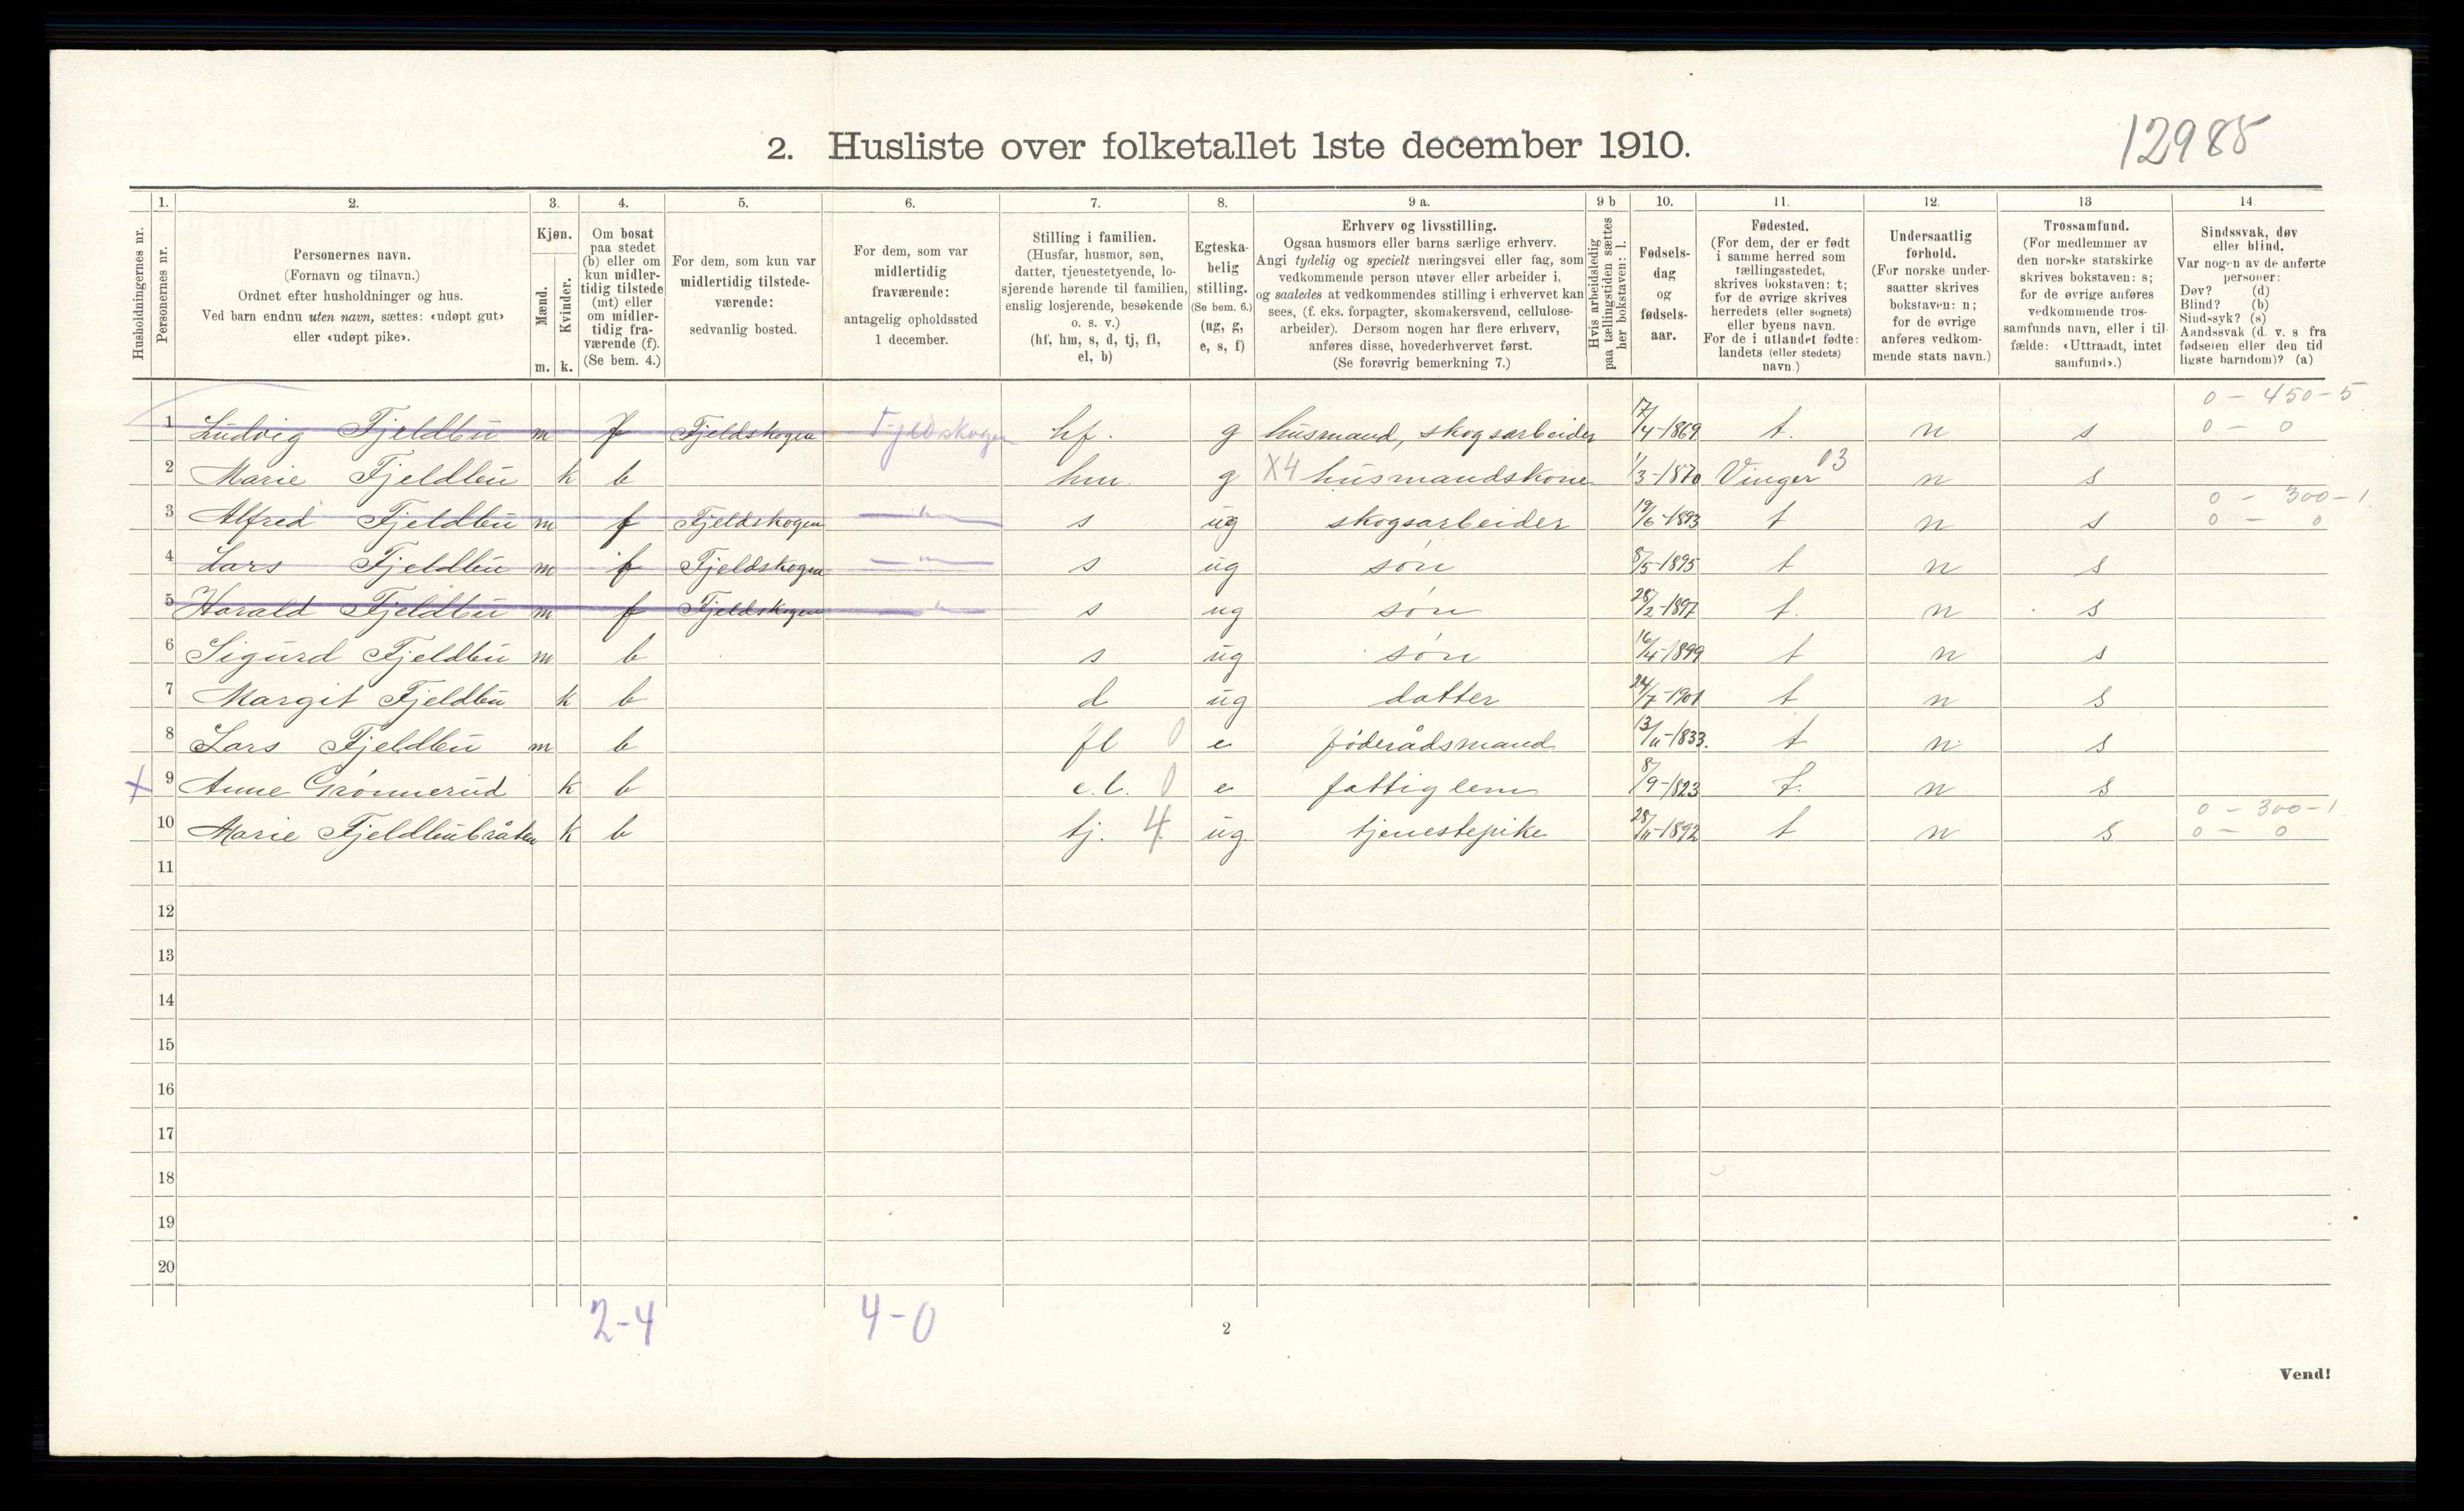 12985
2. Husliste over folketallet 1ste december 1910.
Husholdningernes nr.
1. Personernes nr.
2. Personernes navn. (Fornavn og tilnavn.) Ordnet efter husholdninger og hus. Ved barn endnu uten navn, sættes: «udøpt gut» eller «udøpt pike».
3. Kjøn. Mænd. m. Kvinder. k.
4. Om bosat paa stedet (b) eller om kun midlertidig tilstede (mt) eller om midlertidig fraværende (f). (Se bem. 4.)
5. For dem, som kun var midlertidig tilstedeværende: sedvanlig bosted.
6. For dem, som var midlertidig fraværende: antagelig opholdssted 1 december.
7. Stilling i familien. (Husfar, husmor, søn, datter, tjenestetyende, losjerende hørende til familien, enslig losjerende, besøkende o. s. v.) (hf, hm, s, d, tj, fl, el, b)
8. Egteskabelig stilling. (Se bem. 6.) (ug, g, e, s, f)
9 a. Erhverv og livsstilling. Ogsaa husmors eller barns særlige erhverv. Angi tydelig og specielt næringsvei eller fag, som vedkommende person utøver eller arbeider i, og saaledes at vedkommendes stilling i erhvervet kan sees, (f. eks. forpagter, skomakersvend, cellulosearbeider). Dersom nogen har flere erhverv, anføres disse, hovederhvervet først. (Se forøvrig bemerkning 7.)
9 b Hvis arbeidsledig paa tællingstiden sættes her bokstaven: l.
10. Fødselsdag og fødselsaar.
11. Fødested. (For dem, der er født i samme herred som tællingsstedet, skrives bokstaven: t; for de øvrige skrives herredets (eller sognets) eller byens navn. For de i utlandet fødte: landets (eller stedets) navn.)
12. Undersaatlig forhold. (For norske undersaatter skrives bokstaven: n; for de øvrige anføres vedkommende stats navn.)
13 Trossamfund. (For medlemmer av den norske statskirke skrives bokstaven: s; for de øvrige anføres vedkommende trossamfunds navn, eller i tilfælde: «Uttraadt, intet samfund».)
14. Sindssvak, døv eller blind. Var nogen av de anførte personer: Døv? (d) Blind? (b) Sindssyk? (s) Aandssvak (d. v. s fra fødselen eller den tid ligste barndom)? (a)
0 - 450-5
1 Ludvig Fjeldbu m f Fjeldskogen Fjeldskogen hf. g husmand, skogsarbeider 17/4-1869 t. n s 0 - 0
2 Marie Fjeldbu k b hm. g X4 husmandskone 1/3-1870 Vinger 03 n s
0 - 300-1
3 Alfred Fjeldbu m f Fjeldskogen s ug skogsarbeider 19/6-1893 t n s 0 - 0
4 Lars Fjeldbu m f Fjeldskogen — " — s ug søn 8/5-1895 t n s
5 Harald Fjeldbu m f Fjeldskogen s ug søn 28/2-1897 t. n s
6 Sigurd Fjeldbu m b s ug søn 16/4-1899 t n s
7 Margit Fjeldbu k b d ug datter 24/7-1901 t n s
8 Lars Fjeldbu m b fl 0 e føderådsmand 13/11-1833. t n s
X 9 Anne Grønnerud k b e.l. 0 e fattiglem 8/9-1823 t. n s
0 - 300-1
10 Marie Fjeldbubråten k b tj. 4 ug. tjenestepike 28/11-1892 t n s 0 - 0
11
12
13
14
15
16
17
18
19
20
2-4 4-0
2
Vend!